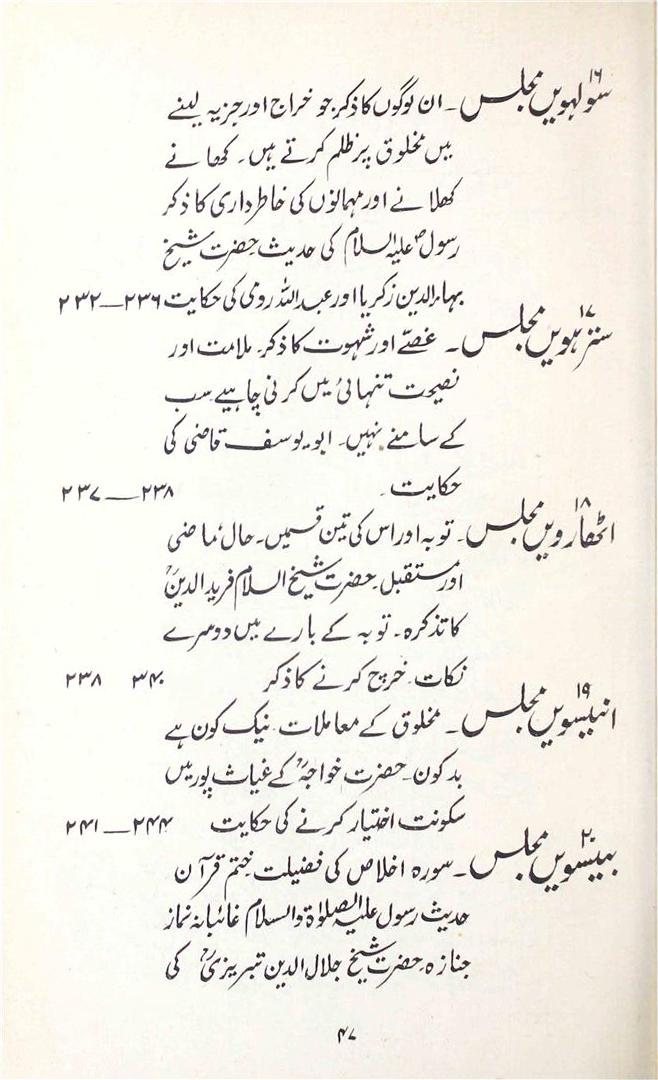 ۱۶
سولہویں مجلس۔ ان لوگوں کا ذکر جو خراج اور جزیہ لینے
میں مخلوق پر ظلم کرتے ہیں۔ کھانے
کھلانے اور مہمانوں کی خاطر داری کا ذکر
رسول ؐ علیہ السلام کی حدیث۔ حضرت شیخ
بہاء الدین زکریا اور عبد اللہ رومی کی حکایت ۲۳۶—۲۳۲
۱۷
سترہویں مجلس۔ غصے اور شہوت کا ذکر۔ ملامت اور
نصیحت تنہائی میں کرنی چاہیے سب
کے سامنے نہیں۔ ابو یوسف قاضی کی
حکایت۔ ۲۳۸—۲۳۷
۱۸
اٹھارویں مجلس۔ توبہ اور اس کی تین قسمیں۔ حال، ماضی
اور مستقبل۔ حضرت شیخ السلام فرید الدینؒ
کا تذکرہ۔ توبہ کے بارے میں دوسرے
نکات۔ خرچ کرنے کا ذکر ۳۴۰ ۲۳۸
۱۹
انیسویں مجلس۔ مخلوق کے معاملات۔ نیک کون ہے
بد کون۔ حضرت خواجہؒ کے غیاث پور میں
سکونت اختیار کرنے کی حکایت ۲۴۴—۲۴۱
۲۰
بیسویں مجلس۔ سورہ اخلاص کی فضیلت۔ ختم قرآن
حدیث رسول علیہ الصلوٰۃ والسلام غائبانہ نماز
جنازہ۔ حضرت شیخ جلال الدین تبریزیؒ کی
۴۷